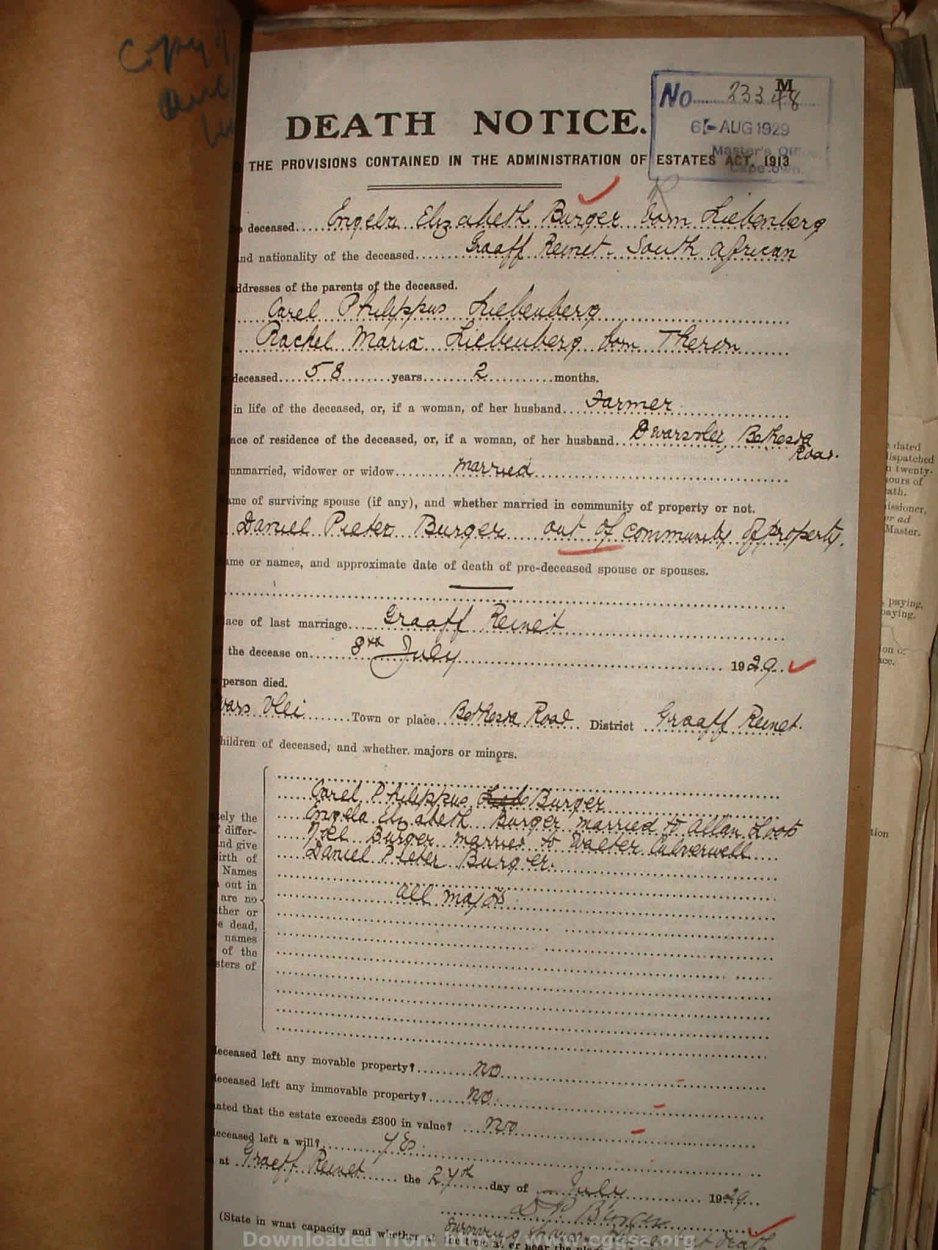 Copy of
No 23348
M
6 - AUG 1929
Master's
DEATH NOTICE.
THE PROVISIONS CONTAINED IN THE ADMINISTRATION OF ESTATES ACT, 1913
deceased.... Engela Elizabeth Burger born Liebenberg
nd nationality of the deceased.... Graaff Reinet. South African
ddresses of the parents of the deceased.
Carel Philippus Liebenberg
Rachel Maria Liebenberg born Theron
deceased.... 58 ....years.... 2 ....months.
in life of the deceased, or, if a woman, of her husband.... Farmer
ace of residence of the deceased, or, if a woman, of her husband. Dwarsvlei, Bethesda
Road.
unmarried, widower or widow.... married
ame of surviving spouse (if any), and whether married in community of property or not.
Daniel Pieter Burger out of community of property.
ame or names, and approximate date of death of pre-deceased spouse or spouses.
ace of last marriage.... Graaff Reinet
the decease on.... 8th July .... 1929.
person died.
wars Vlei ....Town or place. Bethesda Road District Graaff Reinet.
hildren of deceased, and whether majors or minors.
Carel Philippus Burger
Engela Elizabeth Burger married to Allan
Burger married to Walter Culverwell
Daniel Pieter Burger.
all majors.
ely the
differ-
nd give
irth of
Names
out in
are no
ther or
e dead,
names
of the
sters of
deceased left any movable property?.... no
deceased left any immovable property?.... no.
ated that the estate exceeds £300 in value? .. no
deceased left a will?.... yes.
at Graaff Reinet .... the 27th day of July .... 1929
D P Burger
surviving
(State in what capacity and whether
Downloaded from http://www.eggsa.org
dated
dispatched
n twenty-
ours of
ath.
issioner,
er ad
Master.
paying,
paying.